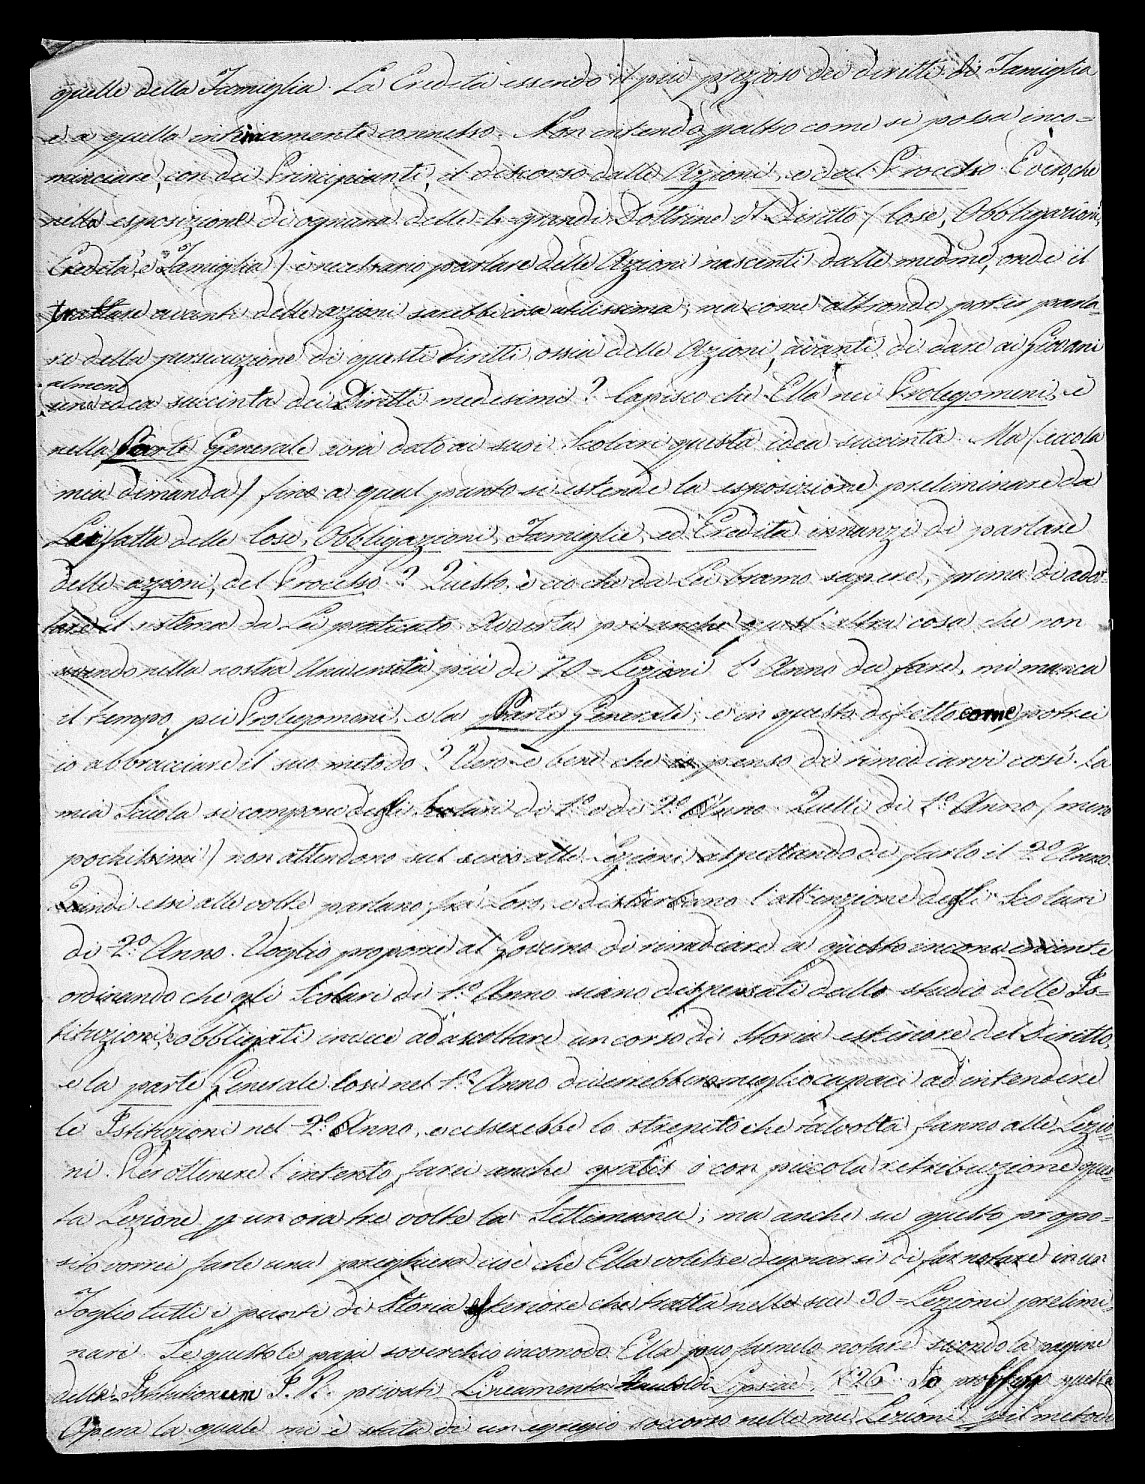 quelle della Famiglia. La Eredità essendo il più prezioso dei diritti di Famiglia
e a quella intimamente connesso. Non intendo p altro come si possa inco=
minciare, con dei Principianti, il discorso dalle Azioni, e dal Processo. È vero, che
nella esposizione di ognuna delle 4 grandi Dottrine del Diritto / Cose, Obbligazioni,
Eredità, e Famiglia / è necessario parlare delle Azioni nascenti dalle medme, onde il
trattare avanti delle azioni sarebbe cosa utilissima; ma come altronde poter parla-
re della persecuzione di questi diritti, ossia delle Azioni, avanti di dare ai Giovani
almeno
una idea succinta dei Diritti medesimi? Capisco che Ella nei Prolegomeni, e
nella Parte Generale avrà dato ai suoi Scolari questa idea succinta. Ma / eccola
mia dimanda / fino a qual punto si estende la esposizione preliminare da
Lei fatta delle Cose, Obbligazioni, Famiglie, ed Eredità innanzi di parlare
delle azioni, del Processo? Questo è ciò che da Lei bramo sapere, prima di adot-
tare il sistema da Lei praticato. Avverta poi anche quest'altra cosa che non
avendo nella nostra Università più di 70 = Lezioni l'Anno da fare, mi manca
il tempo pei Prolegomeni, e la Parte Generale; e in questo difetto come potrei
io abbracciare il suo metodo? Vero è bene che penso di rimediarvi così. La
mia Scuola si compone degli Scolari di 1.º e di 2.º Anno. Quelli di 1.º Anno / meno
pochissimi / non attendono sul serio alle Lezioni aspettando di farlo il 2.º Anno.
Quindi essi alle volte parlano frà loro, e disturbano l'attenzione degli Scolari
di 2.º Anno. Voglio proporre al Governo di rimediare a questo inconveniente
ordinando che gli Scolari di 1.º Anno siano dispensati dallo studio delle Is=
tituzioni, e obbligati invece ad ascoltare un corso di Storia esteriore del Diritto,
e la parte Generale. Così nel 1.º Anno diverrebbero meglio capaci ad intendere
le Istituzioni nel 2.º Anno, e cesserebbe lo strepito che talvolta fanno alle Lezio-
ni. Per ottenere l'intento farei anche gratis o con piccola retribuzione ques-
ta Lezione p un ora tre volte la Settimana; ma anche su questo propo=
sito vorrei farle una preghiera cioè che Ella volesse degnarsi di far notare in un
Foglio tutti i punti di Storia esteriore che tratta nelle sue 30 = Lezioni prelimi-
nari. Se questo le pare soverchio incomodo Ella può farmelo notare secondo la pagine
delle Institutionum I. R. privati Lineamenta Lipsiae, 1826. Io professo questa
Opera la quale mi è stata di un egregio soccorso nelle mie Lezioni p il metodo